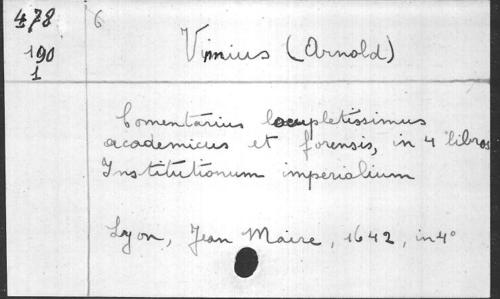 478 6
190
1
Vinnius (Arnold)
Comentarius locupletissimus
academicus et forensis, in 4 libros
Institutionum imperialium
Lyon, Jean Maire, 1642, in 4°